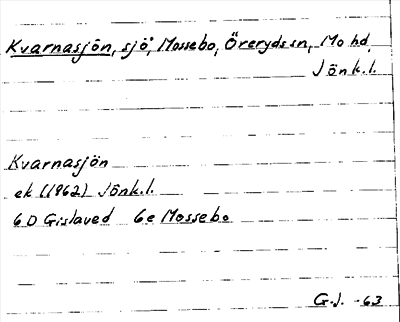 Kvarnasjön, sjö, Mossebo, Öreryds sn, Mo hd,
Jönk.l.
Kvarnasjön
ek (1962) Jönk.l.
6D Gislaved 6e Mossebo
G.J. -63